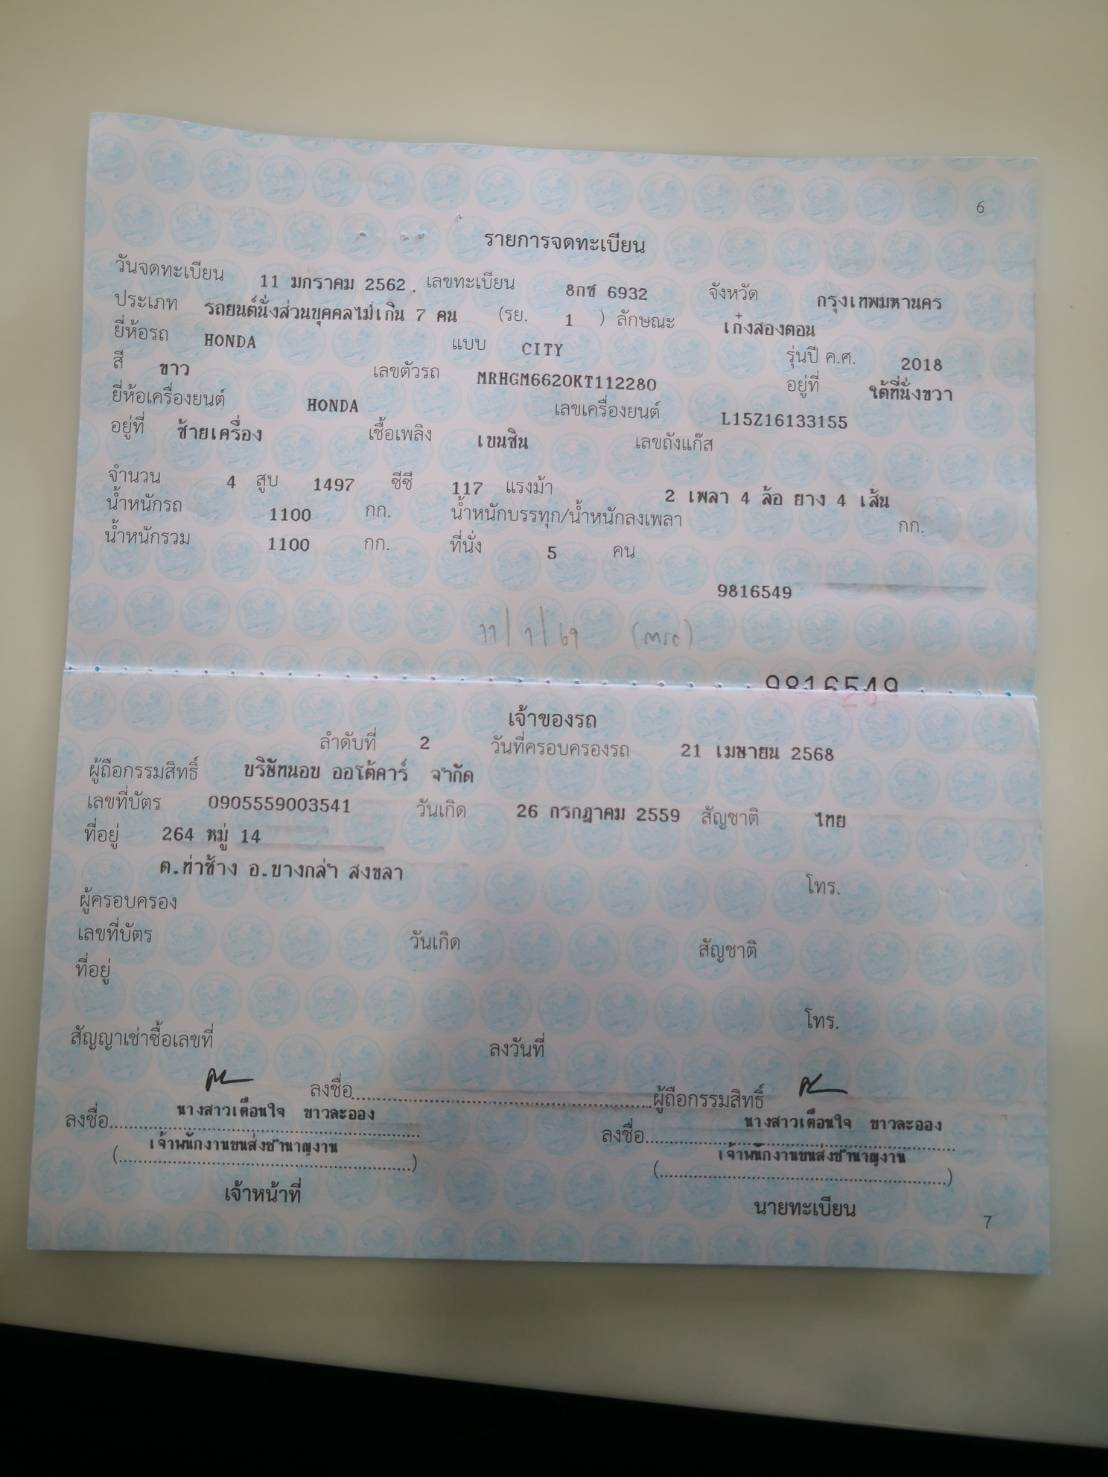 6
รายการจดทะเบียน
วันจดทะเบียน 11 มกราคม 2562 เลขทะเบียน 8กช 6932 จังหวัด กรุงเทพมหานคร
ประเภท รถยนต์นั่งส่วนบุคคลไม่เกิน 7 คน (รย. 1 ) ลักษณะ เก๋งสองตอน
ยี่ห้อรถ HONDA แบบ CITY รุ่นปี ค.ศ. 2018
สี ขาว เลขตัวรถ MRHGM6620KT112280 อยู่ที่ ใต้ที่นั่งขวา
ยี่ห้อเครื่องยนต์ HONDA เลขเครื่องยนต์ L15Z16133155
อยู่ที่ ซ้ายเครื่อง เชื้อเพลิง เบนซิน เลขถังแก๊ส
จำนวน 4 สูบ 1497 ซีซี 117 แรงม้า 2 เพลา 4 ล้อ ยาง 4 เส้น
น้ำหนักรถ 1100 กก. น้ำหนักบรรทุก/น้ำหนักลงเพลา กก.
น้ำหนักรวม 1100 กก. ที่นั่ง 5 คน
9816549
11/1/69
9816549
เจ้าของรถ
ลำดับที่ 2 วันที่ครอบครองรถ 21 เมษายน 2568
ผู้ถือกรรมสิทธิ์ บริษัทนอบ ออโต้คาร์ จำกัด
เลขที่บัตร 0905559003541 วันเกิด 26 กรกฎาคม 2559 สัญชาติ ไทย
ที่อยู่ 264 หมู่ 14
ต.ท่าช้าง อ.บางกล่ำ สงขลา โทร.
ผู้ครอบครอง
เลขที่บัตร วันเกิด สัญชาติ
ที่อยู่
โทร.
สัญญาเช่าซื้อเลขที่ ลงวันที่
ลงชื่อ ผู้ถือกรรมสิทธิ์
ลงชื่อ นางสาวเตือนใจ ขาวละออง ลงชื่อ นางสาวเตือนใจ ขาวละออง
(เจ้าพนักงานขนส่งชำนาญงาน) (เจ้าพนักงานขนส่งชำนาญงาน)
เจ้าหน้าที่ นายทะเบียน
7